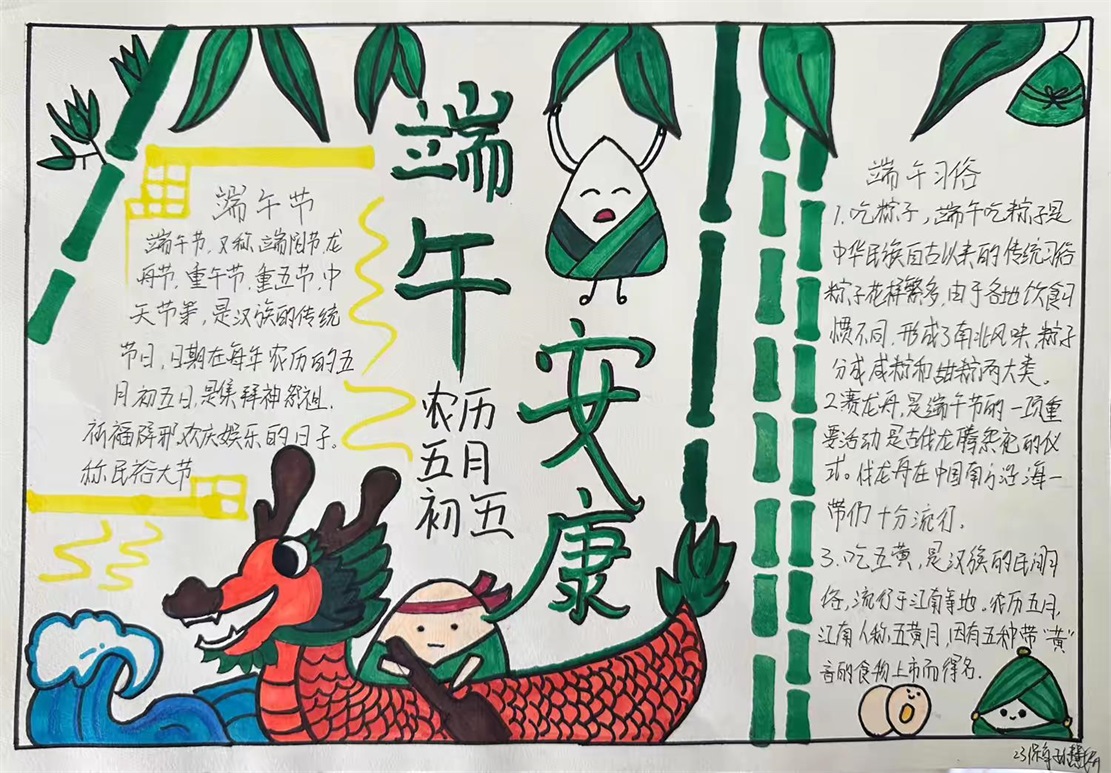 端午安康
农历
五月
初五
端午节
端午节，又称端阳节，龙
舟节，重午节，重五节，中
天节等，是汉族的传统
节日，日期在每年农历的五
月初五日，是集拜神祭祖，
祈福辟邪，欢庆娱乐的日子。
称民俗大节
端午习俗
1.吃粽子，端午吃粽子是
中华民族自古以来的传统习俗
粽子花样繁多，由于各地饮食习
惯不同，形成了南北风味，粽子
分成咸粽和甜粽两大类。
2.赛龙舟，是端午节的一项重
要活动是古代龙腾祭祀的仪
式。伐龙舟在中国南方沿海一
带们十分流行。
3.吃五黄，是汉族的民间习
俗，流行于江南等地。农历五月，
江南人称五黄月，因有五种带“黄”
音的食物上市而得名.